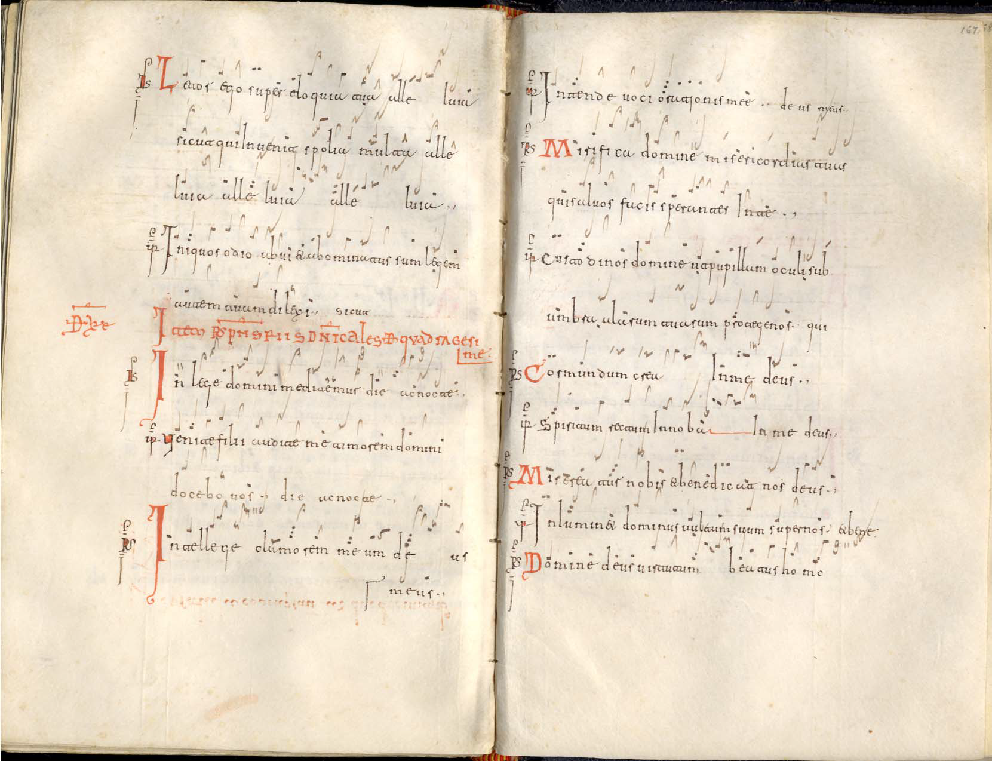 Letor ego super eloquia tua alle luia
sicut qui invenit spolia multa alle
luia alle luia alle luia
Iniquos odio abui & abominatus sum legem
autem tuam dilexi sicut
quadragesi
me
In lege domini meditemus die ac nocte
Venite filii audite me timorem domini
docebo vos die ac nocte
Intellege clamorem meum de us
meus
Intende voci orationis mee deus meus
Mirifica domine misericordias tuas
qui salvos facis sperantes in te
Custodi nos domine ut pupillam oculi sub
umbra alarum tuarum protege nos qui
Cor mundum crea In me deus
Spiritum rectum Innoba In me deus
Miserea tus nobis & benedicat nos deus
Inluminet dominus vultum suum super nos
Domine deus virtutum beatus homo